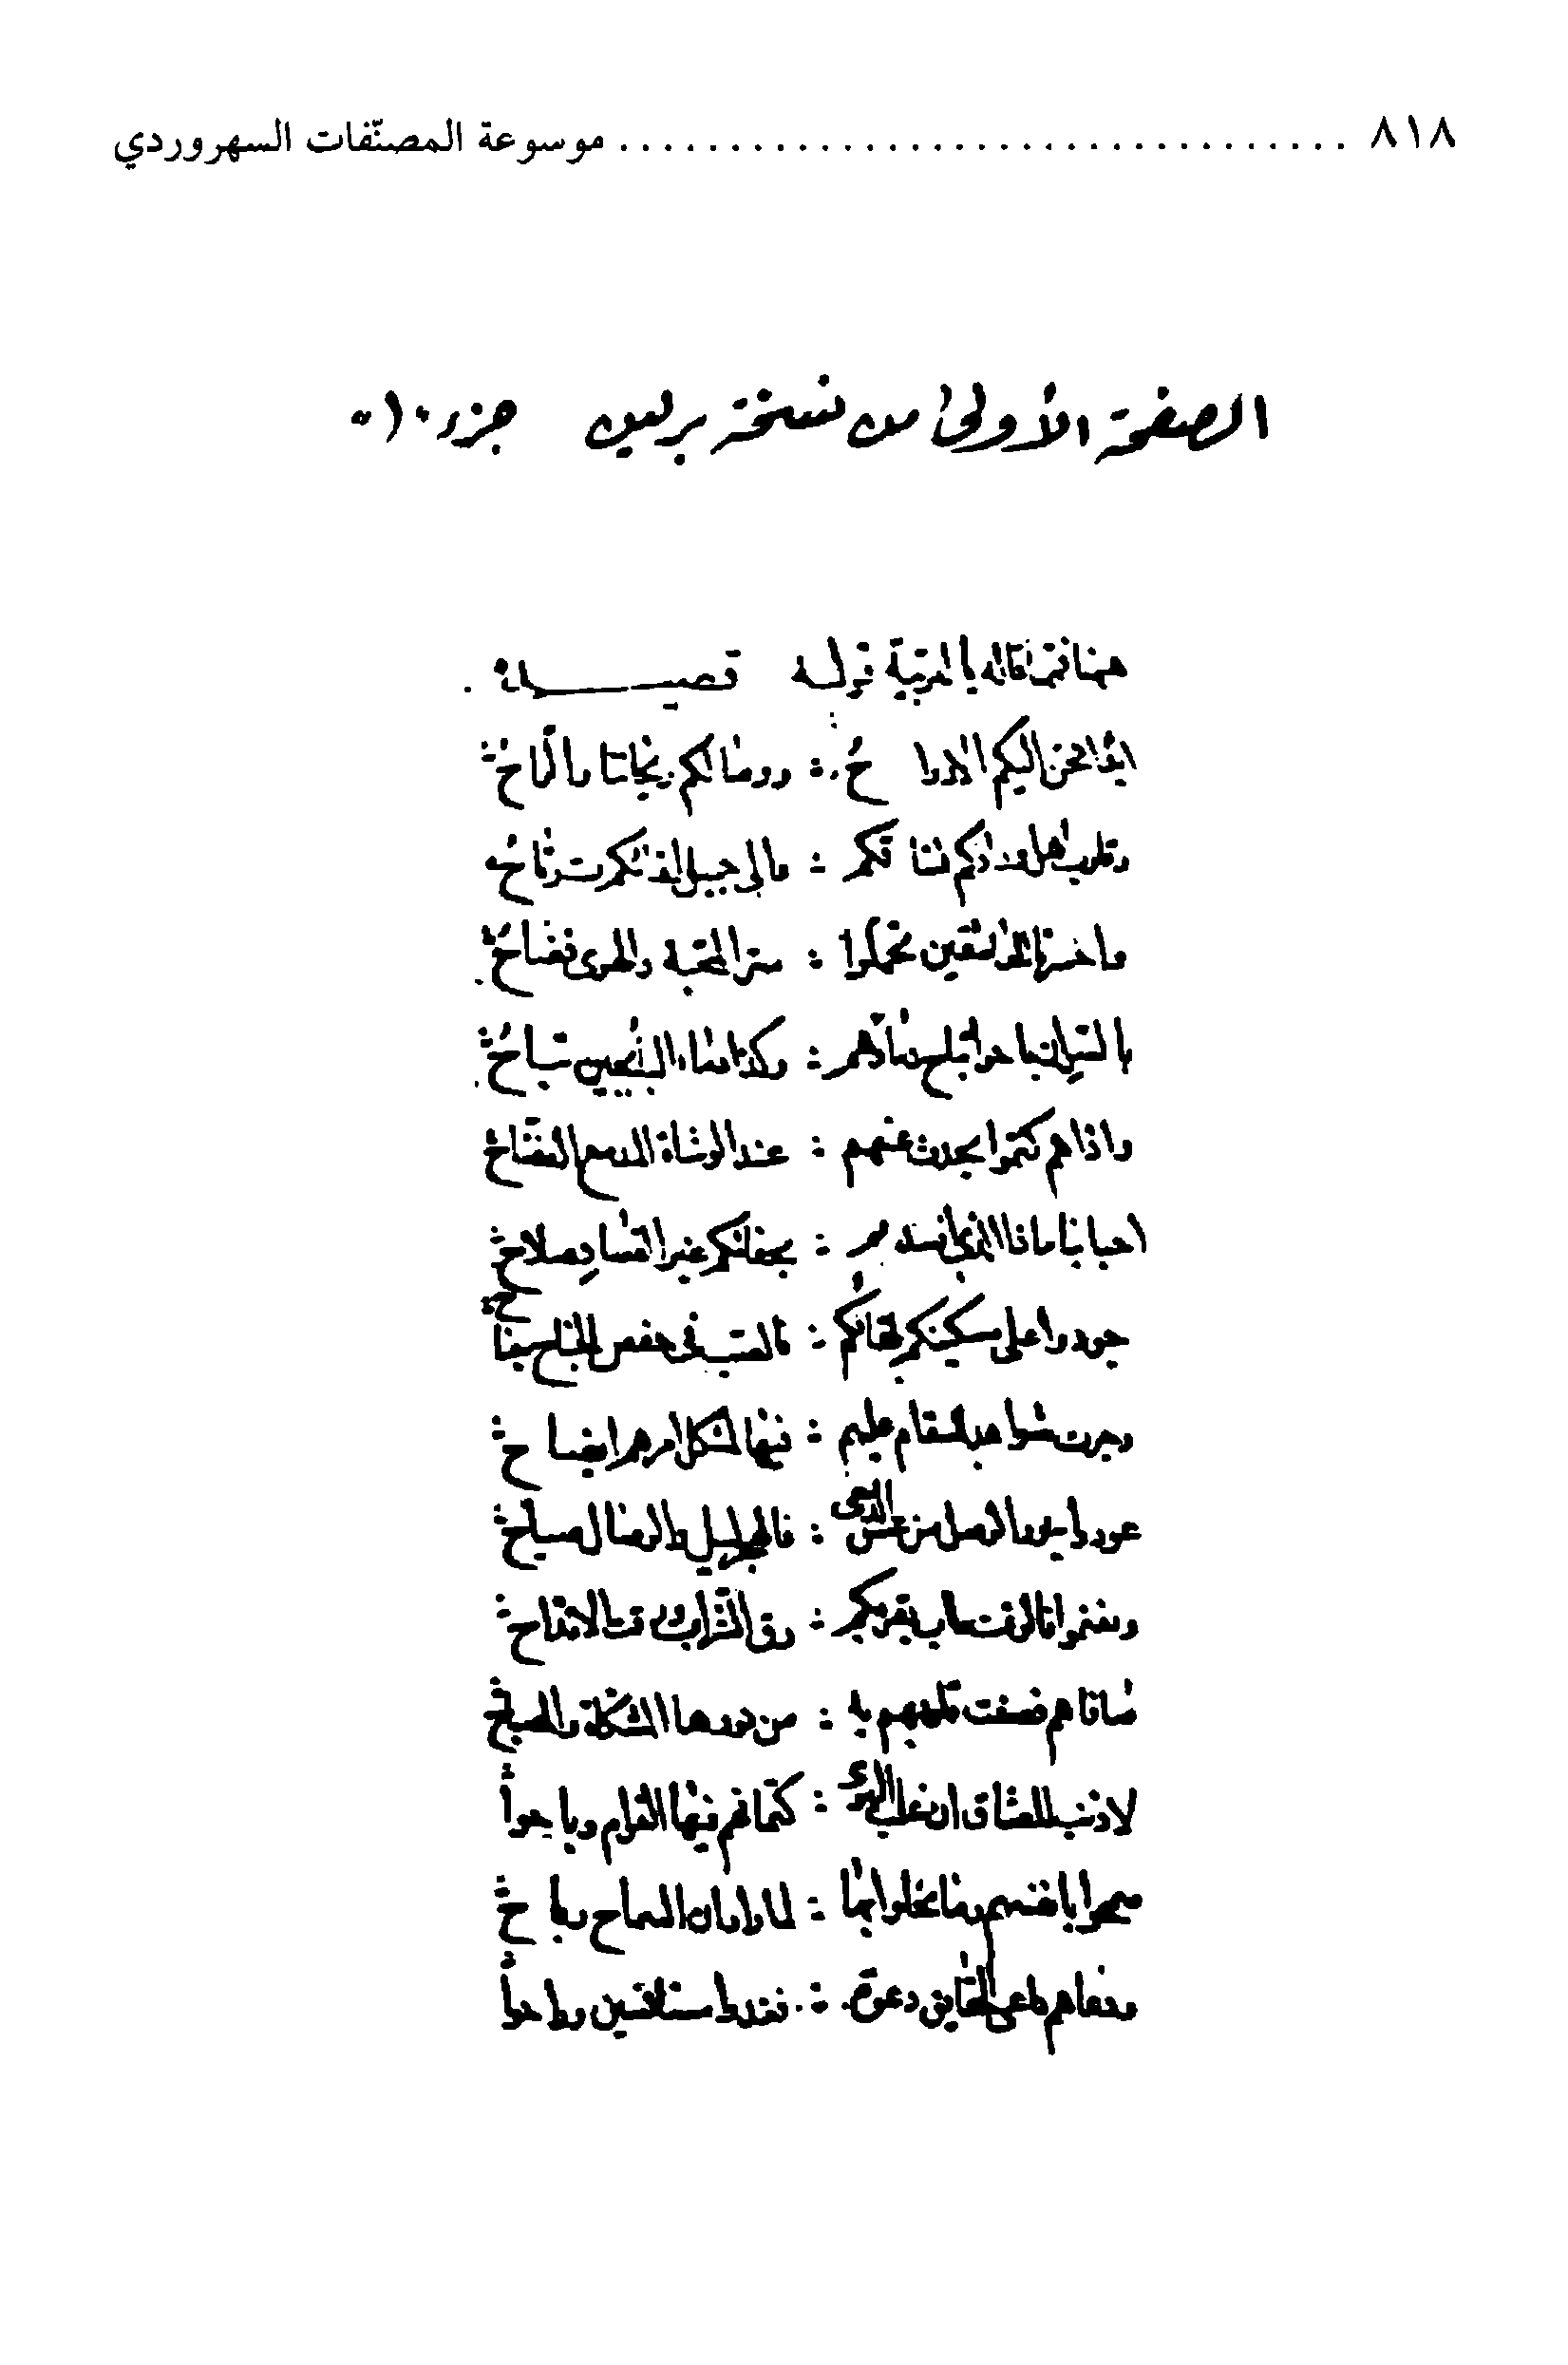 ٨١٨ ................................ موسوعة المصنّفات السهروردي
الصفحة الأولى من نسخة برلين جزء ٥١٠
قاله بالعربية قوله قصيدة
ابدا تحن اليكم الارواح : ووصالكم ريحانها والراح
وقلوب اهل ودادكم تشتاقكم : والى جميل لقائكم ترتاح
واحسرتا للعاشقين تحملوا : ستر المحبة والهوى فضاح
بالسر ان باحوا تباح دماؤهم : وكذا دماء البائحين تباح
واذا هم كتموا يحدث عنهم : عند الوشاة المدمع السفاح
احبابنا ماذا الذي افسدتم : بجفائكم غير الفساد صلاح
جودوا على مسكينكم بلقائكم : فالصب في خفض الجناح جناح
وجرت شواهد للسقام عليهم : فيها لمشكل امرهم ايضاح
عودوا بنور الوصل من غسق الدجى : فالهجر ليل والوصال صباح
وتمتعوا فالوقت طاب بقربكم : رق الشراب ورقت الاقداح
صافاهم فصفت قلوبهم به : من نورها المشكاة والمصباح
لا ذنب للعشاق ان غلب الهوى : كتمانهم فنما الغرام وباحوا
سمحوا بانفسهم وما بخلوا بها : لما دروا ان السماح رباح
ودعاهم داعي الحقايق دعوة : فغدوا مستانسين وراحوا